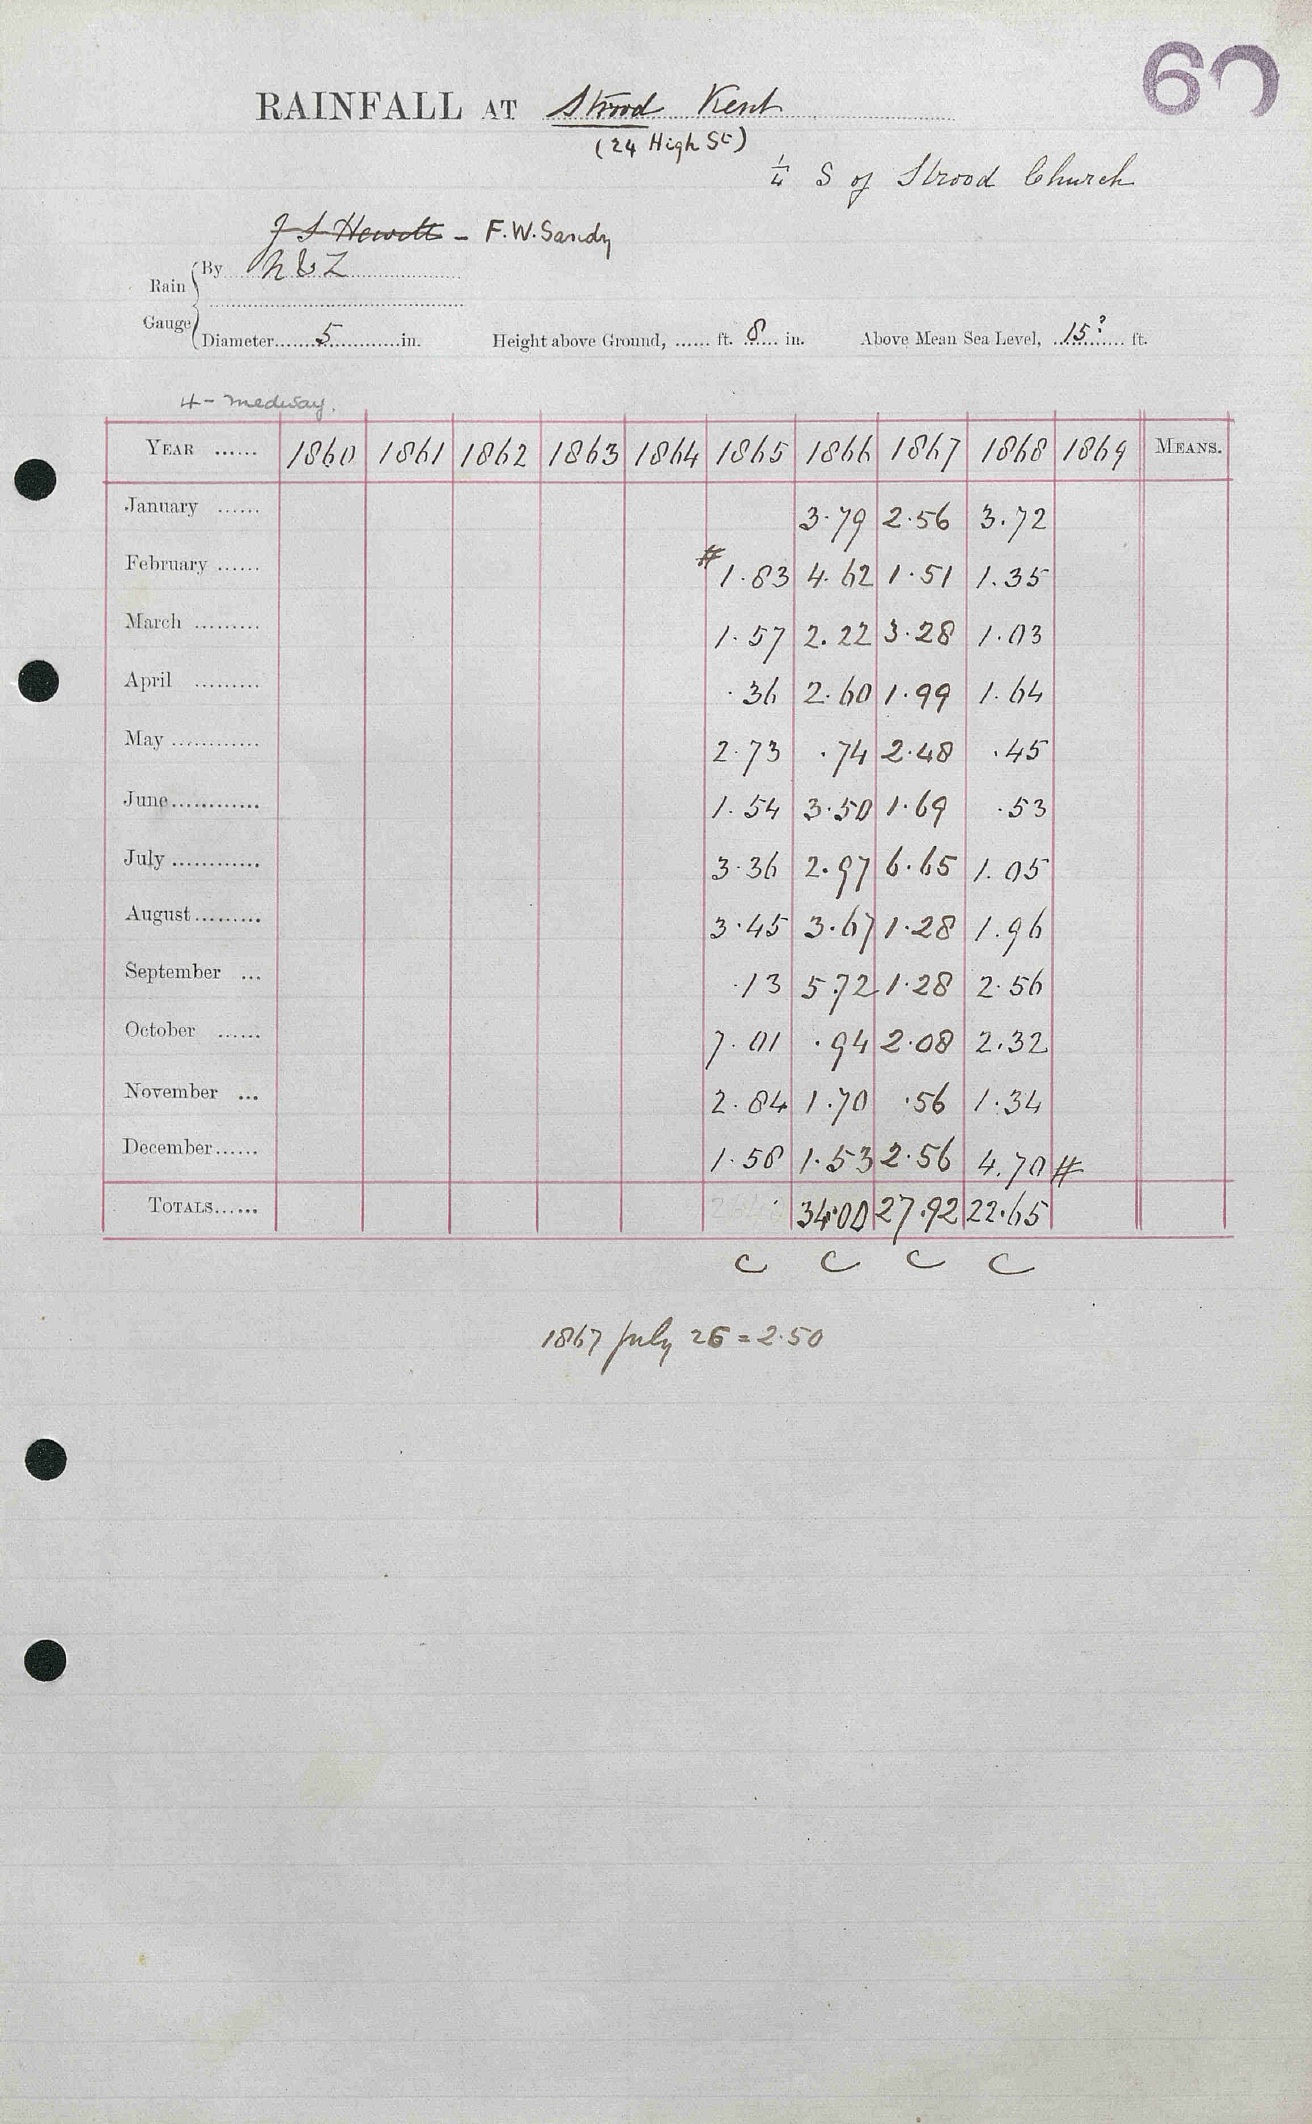 60
RAINFALL AT Strood Kent
(24 High St)
1/4 S of Strood Church
J S Hewett - F.W. Sandy
Rain Gauge
By N & Z
Diameter 5 in. Height above Ground, ...... ft. 8 in. Above Mean Sea Level, 15? ft.
4 - Medway.
YEAR ...... 1860 1861 1862 1863 1864 1865 1866 1867 1868 1869 MEANS.
January ...... 3.79 2.56 3.72
February ...... # 1.83 4.62 1.51 1.35
March ......... 1.57 2.22 3.28 1.03
April ......... .36 2.60 1.99 1.64
May ............ 2.73 .74 2.48 .45
June............ 1.54 3.50 1.69 .53
July ............ 3.36 2.97 6.65 1.05
August......... 3.45 3.67 1.28 1.96
September ... .13 5.72 1.28 2.56
October ...... 7.01 .94 2.08 2.32
November ... 2.84 1.70 .56 1.34
December...... 1.58 1.53 2.56 4.70 #
TOTALS...... 34.00 27.92 22.65
C C C C
1867 July 26 = 2.50